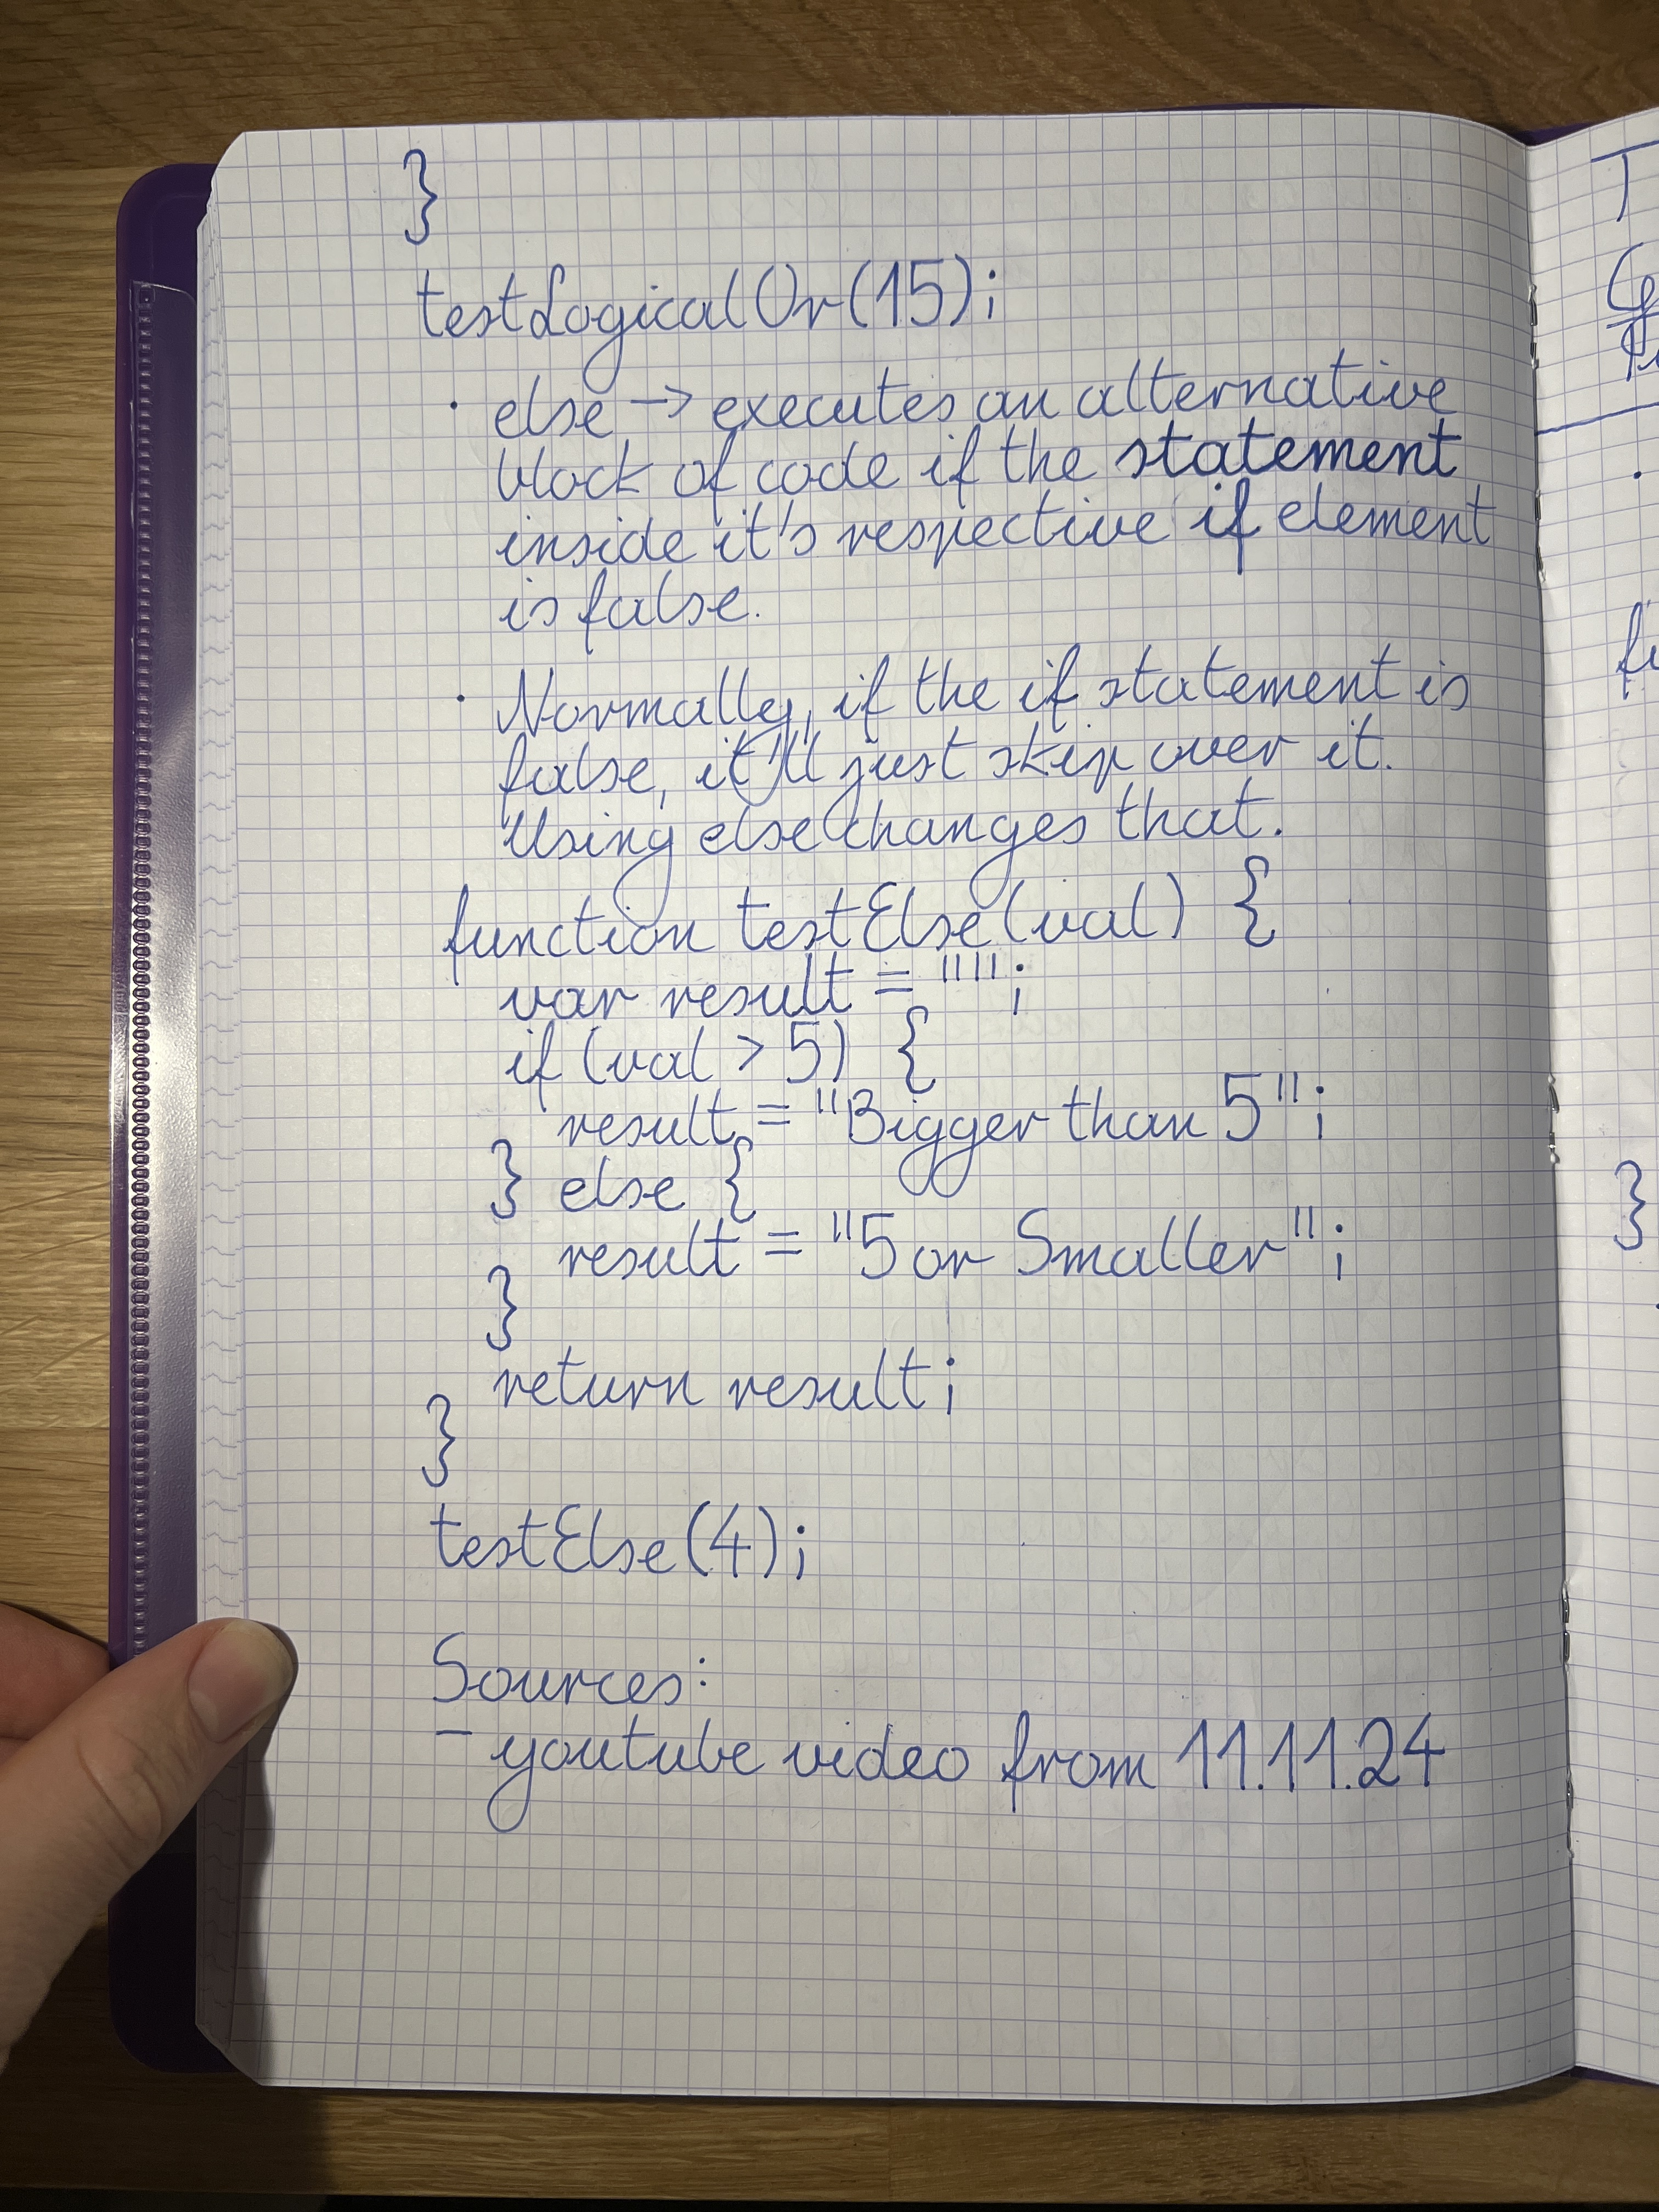 }
testLogicalOr(15);
· else → executes an alternative
block of code if the statement
inside it's respective if element
is false.
· Normally, if the if statement is
false, it'll just skip over it.
Using else changes that.
function testElse(val) {
var result = "";
if (val > 5) {
result = "Bigger than 5";
} else {
result = "5 or Smaller";
}
return result;
}
testElse(4);
Sources:
- youtube video from 11.11.24
}